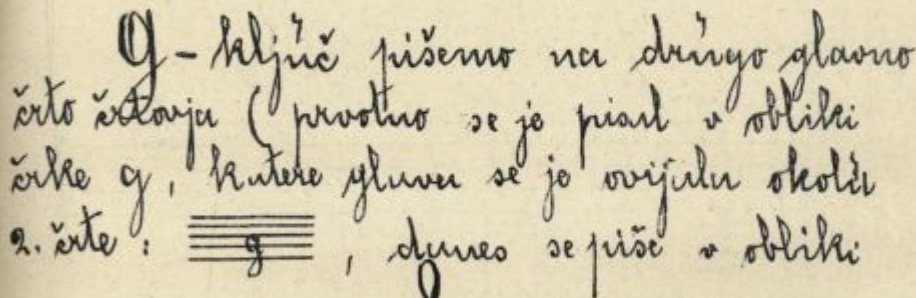 G-ključ pišemo na drúgo glavno
črto črtovja (prvotno se je pisal v obliki
črke g, katere glava se je ovijala okoli
2. črte: g, danes se piše v obliki